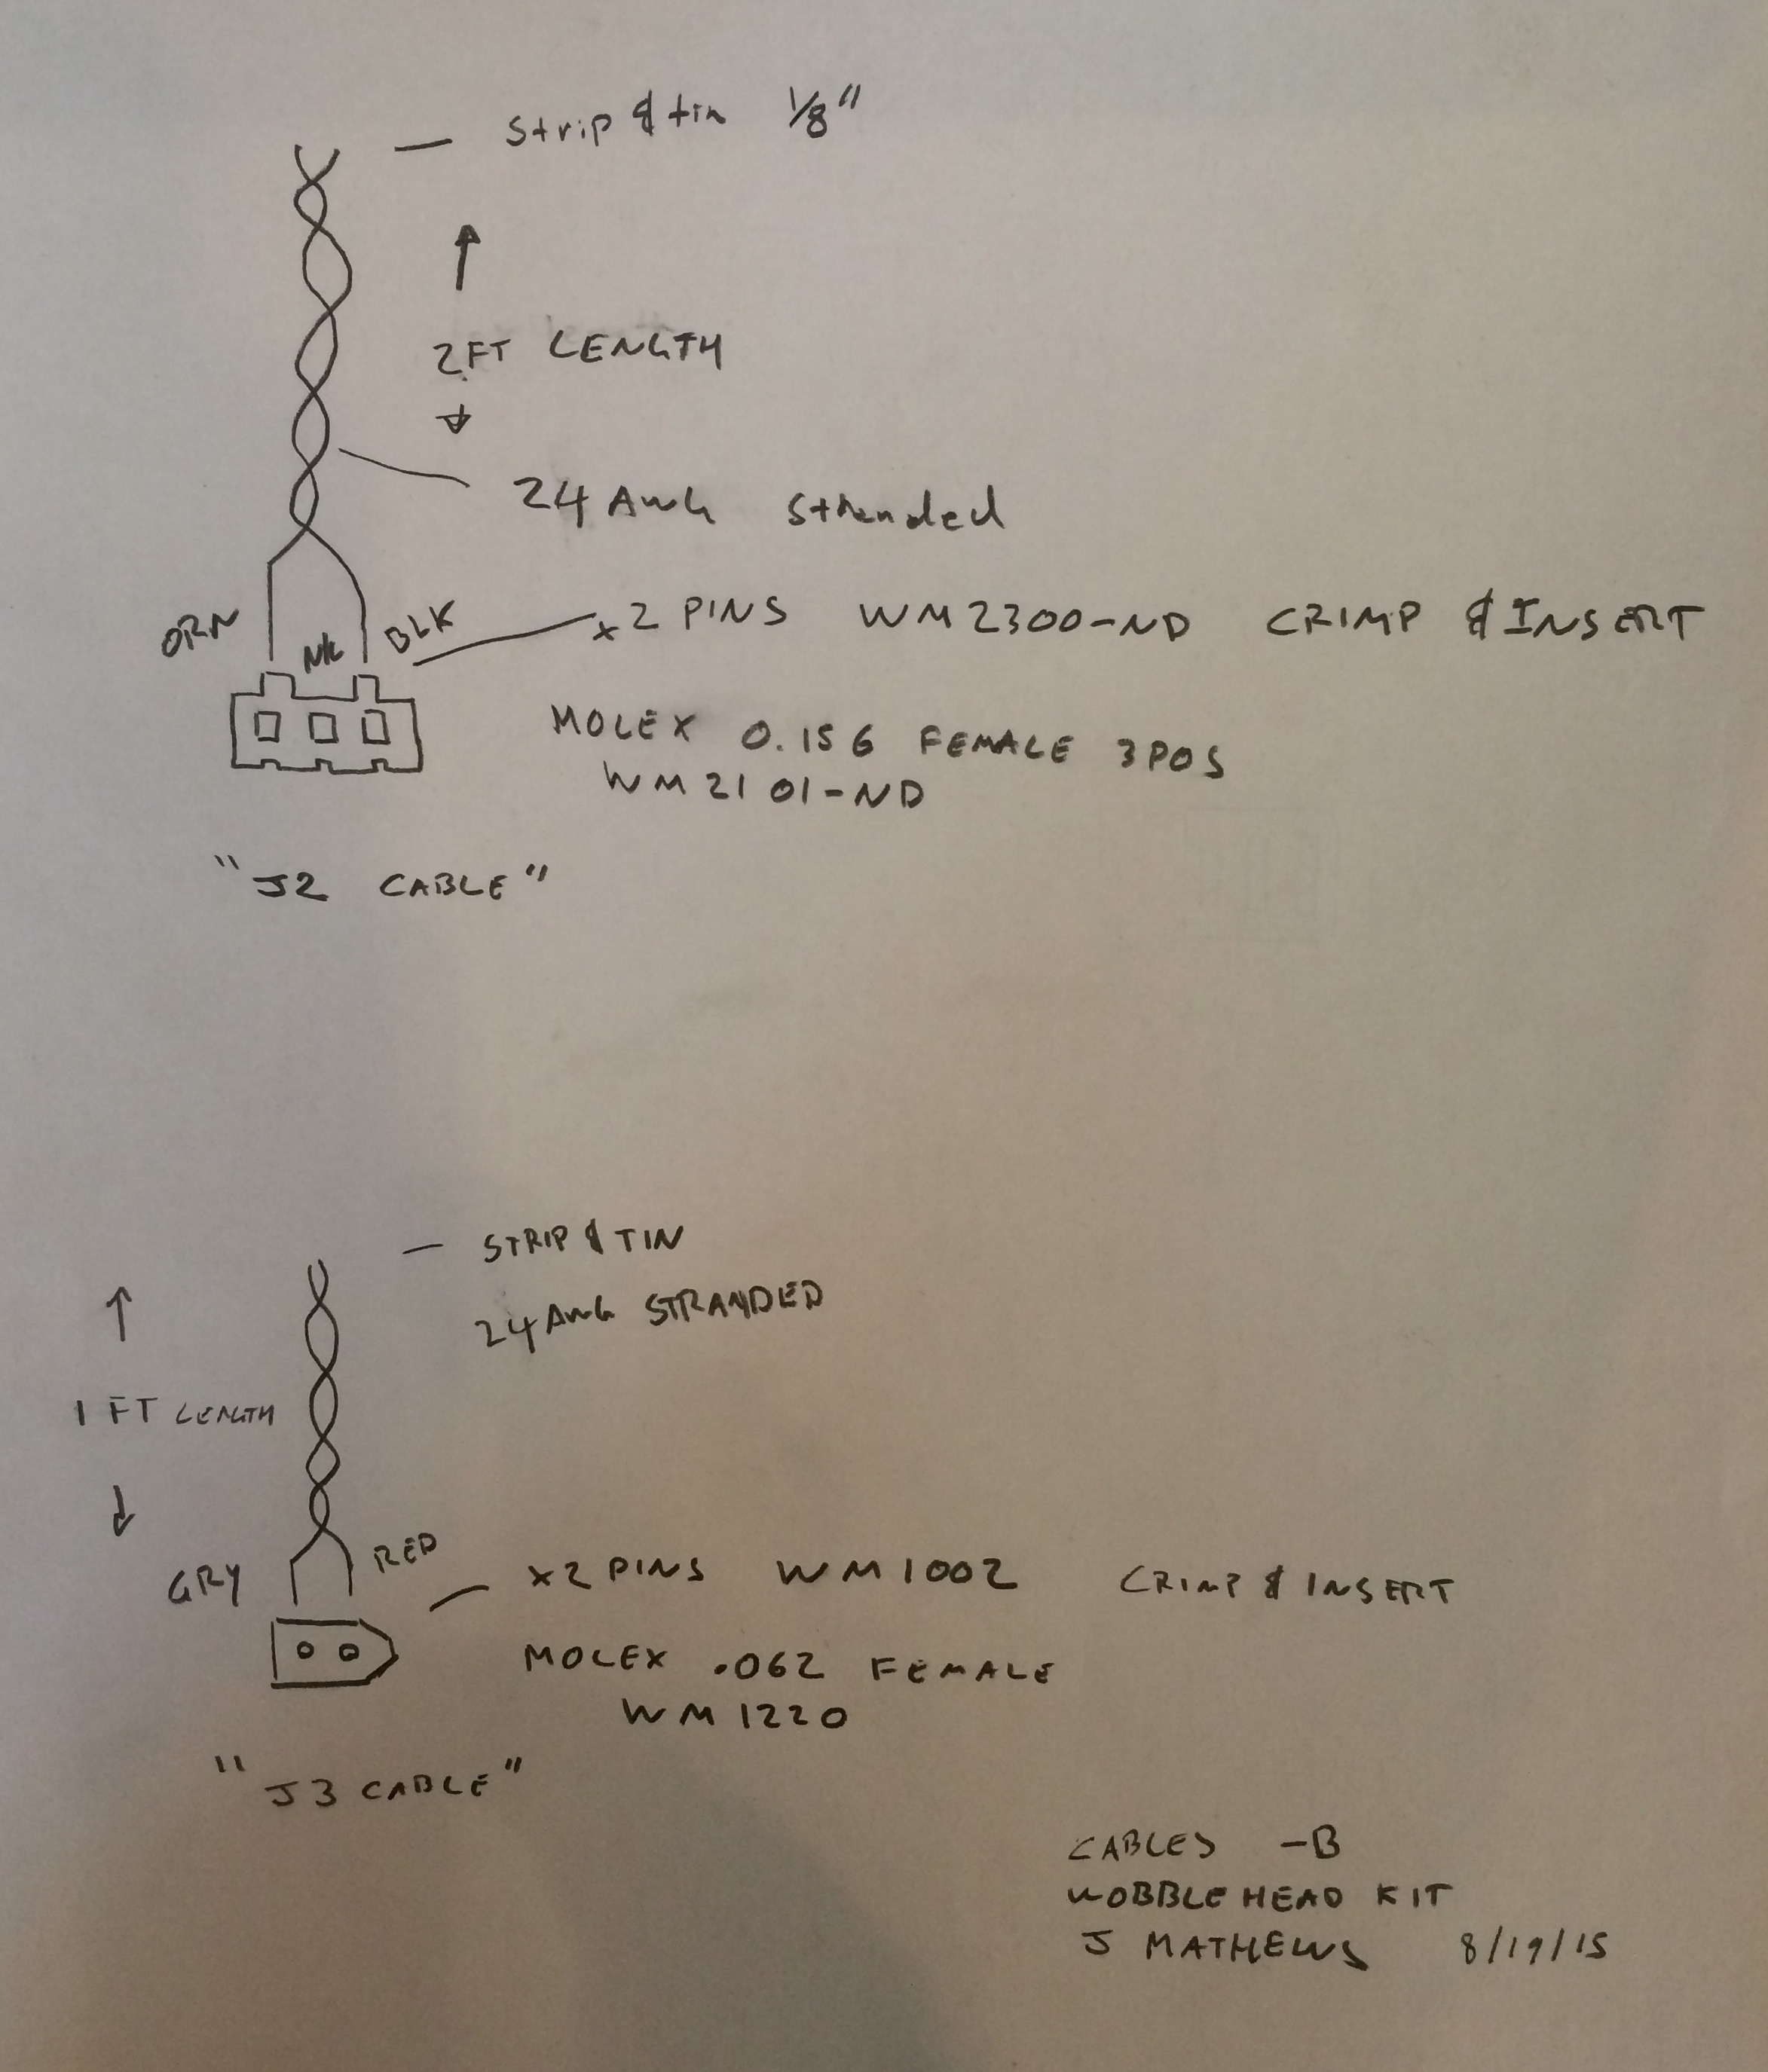 Strip & tin 1/8"
2FT LENGTH
24 AWG Stranded
ORN
N/C
BLK
x2 PINS WM2300-ND CRIMP & INSERT
MOLEX 0.156 FEMALE 3POS
WM2101-ND
"J2 CABLE"
STRIP & TIN
24 AWG STRANDED
1 FT LENGTH
GRY
RED
x2 PINS WM1002 CRIMP & INSERT
MOLEX .062 FEMALE
WM1220
"J3 CABLE"
CABLES -B
WOBBLEHEAD KIT
J MATHEWS 8/19/15